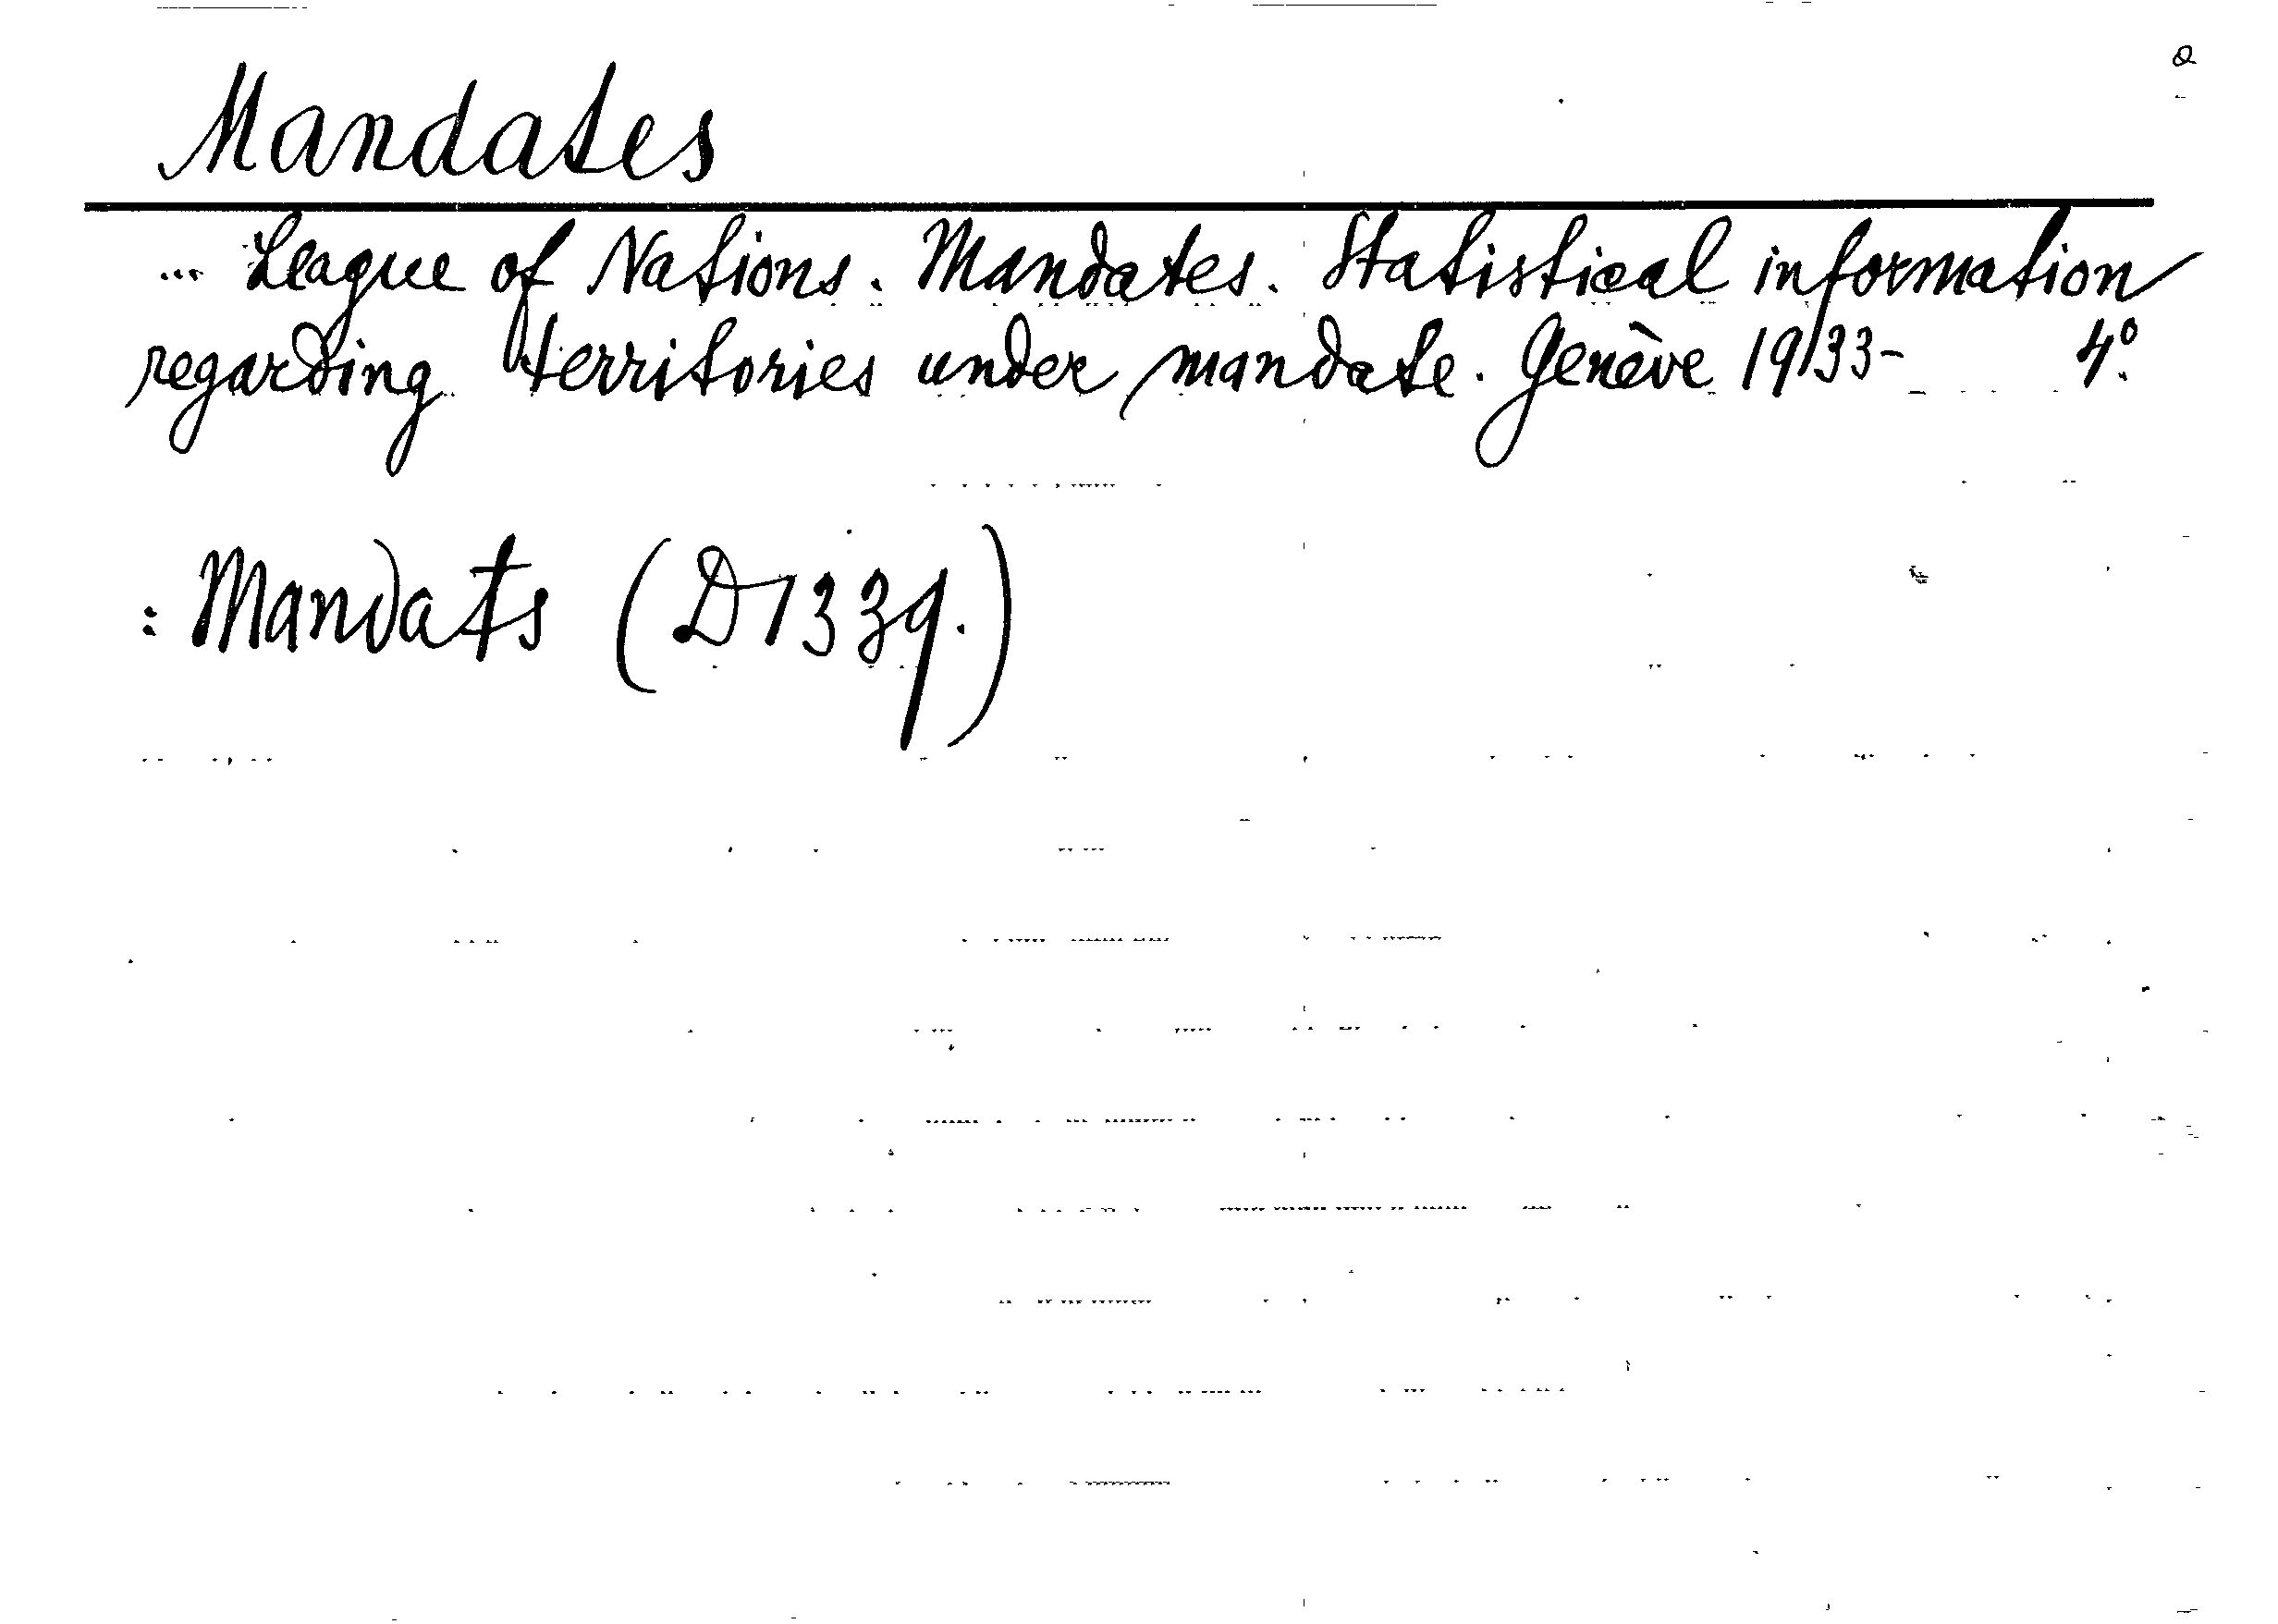 Mandates
... League of Nations. Mandates. Statistical information
regarding territories under mandate. Genève 1933- 4°.
: Mandats (D1339.)